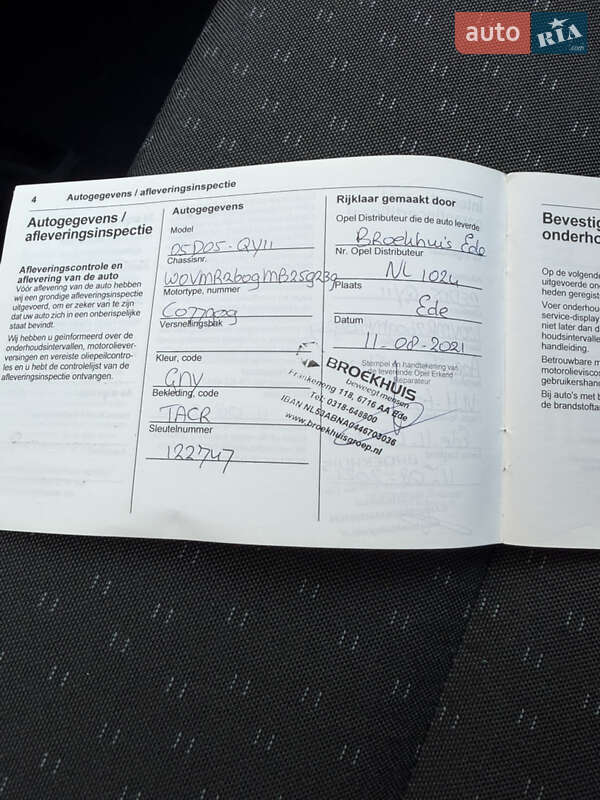 auto RIA .com
4 Autogegevens / afleveringsinspectie
Autogegevens /
afleveringsinspectie
Afleveringscontrole en
aflevering van de auto
Vóór aflevering van de auto hebben
wij een grondige afleveringsinspectie
uitgevoerd, om er zeker van te zijn
dat uw auto zich in een onberispelijke
staat bevindt.
Wij hebben u geïnformeerd over de
onderhoudsintervallen, motoroliever-
versingen en vereiste oliepeilcontro-
les en u hebt de controlelijst van de
afleveringsinspectie ontvangen.
Autogegevens
Model
05D05-QY11
Chassisnr.
Motortype, nummer
Versnellingsbak
Kleur, code
GNV
Bekleding, code
TACR
Sleutelnummer
122747
Rijklaar gemaakt door
Opel Distributeur die de auto leverde
Broekhuis Ede
Nr. Opel Distributeur
NL 1024
Plaats
Ede
Datum
11-08-2021
Stempel en handtekening van
de leverende Opel Erkend
Reparateur
BROEKHUIS
beweegt mensen
Frankeneng 118, 6716 AA Ede
Tel. 0318-648800
IBAN NL53ABNA0446703036
www.broekhuisgroep.nl
Bevestig
onderho
Op de volgende
uitgevoerde on
heden geregist
Voer onderhou
service-display
niet later dan d
houdsintervallen
handleiding.
Betrouwbare m
motorolieviscos
gebruikershand
Bij auto's met b
de brandstoffa